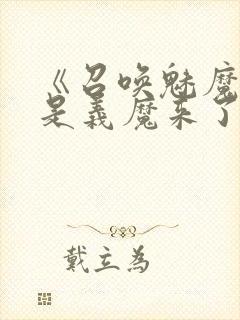 《召唤魅魔
是義魔来了
戴立為